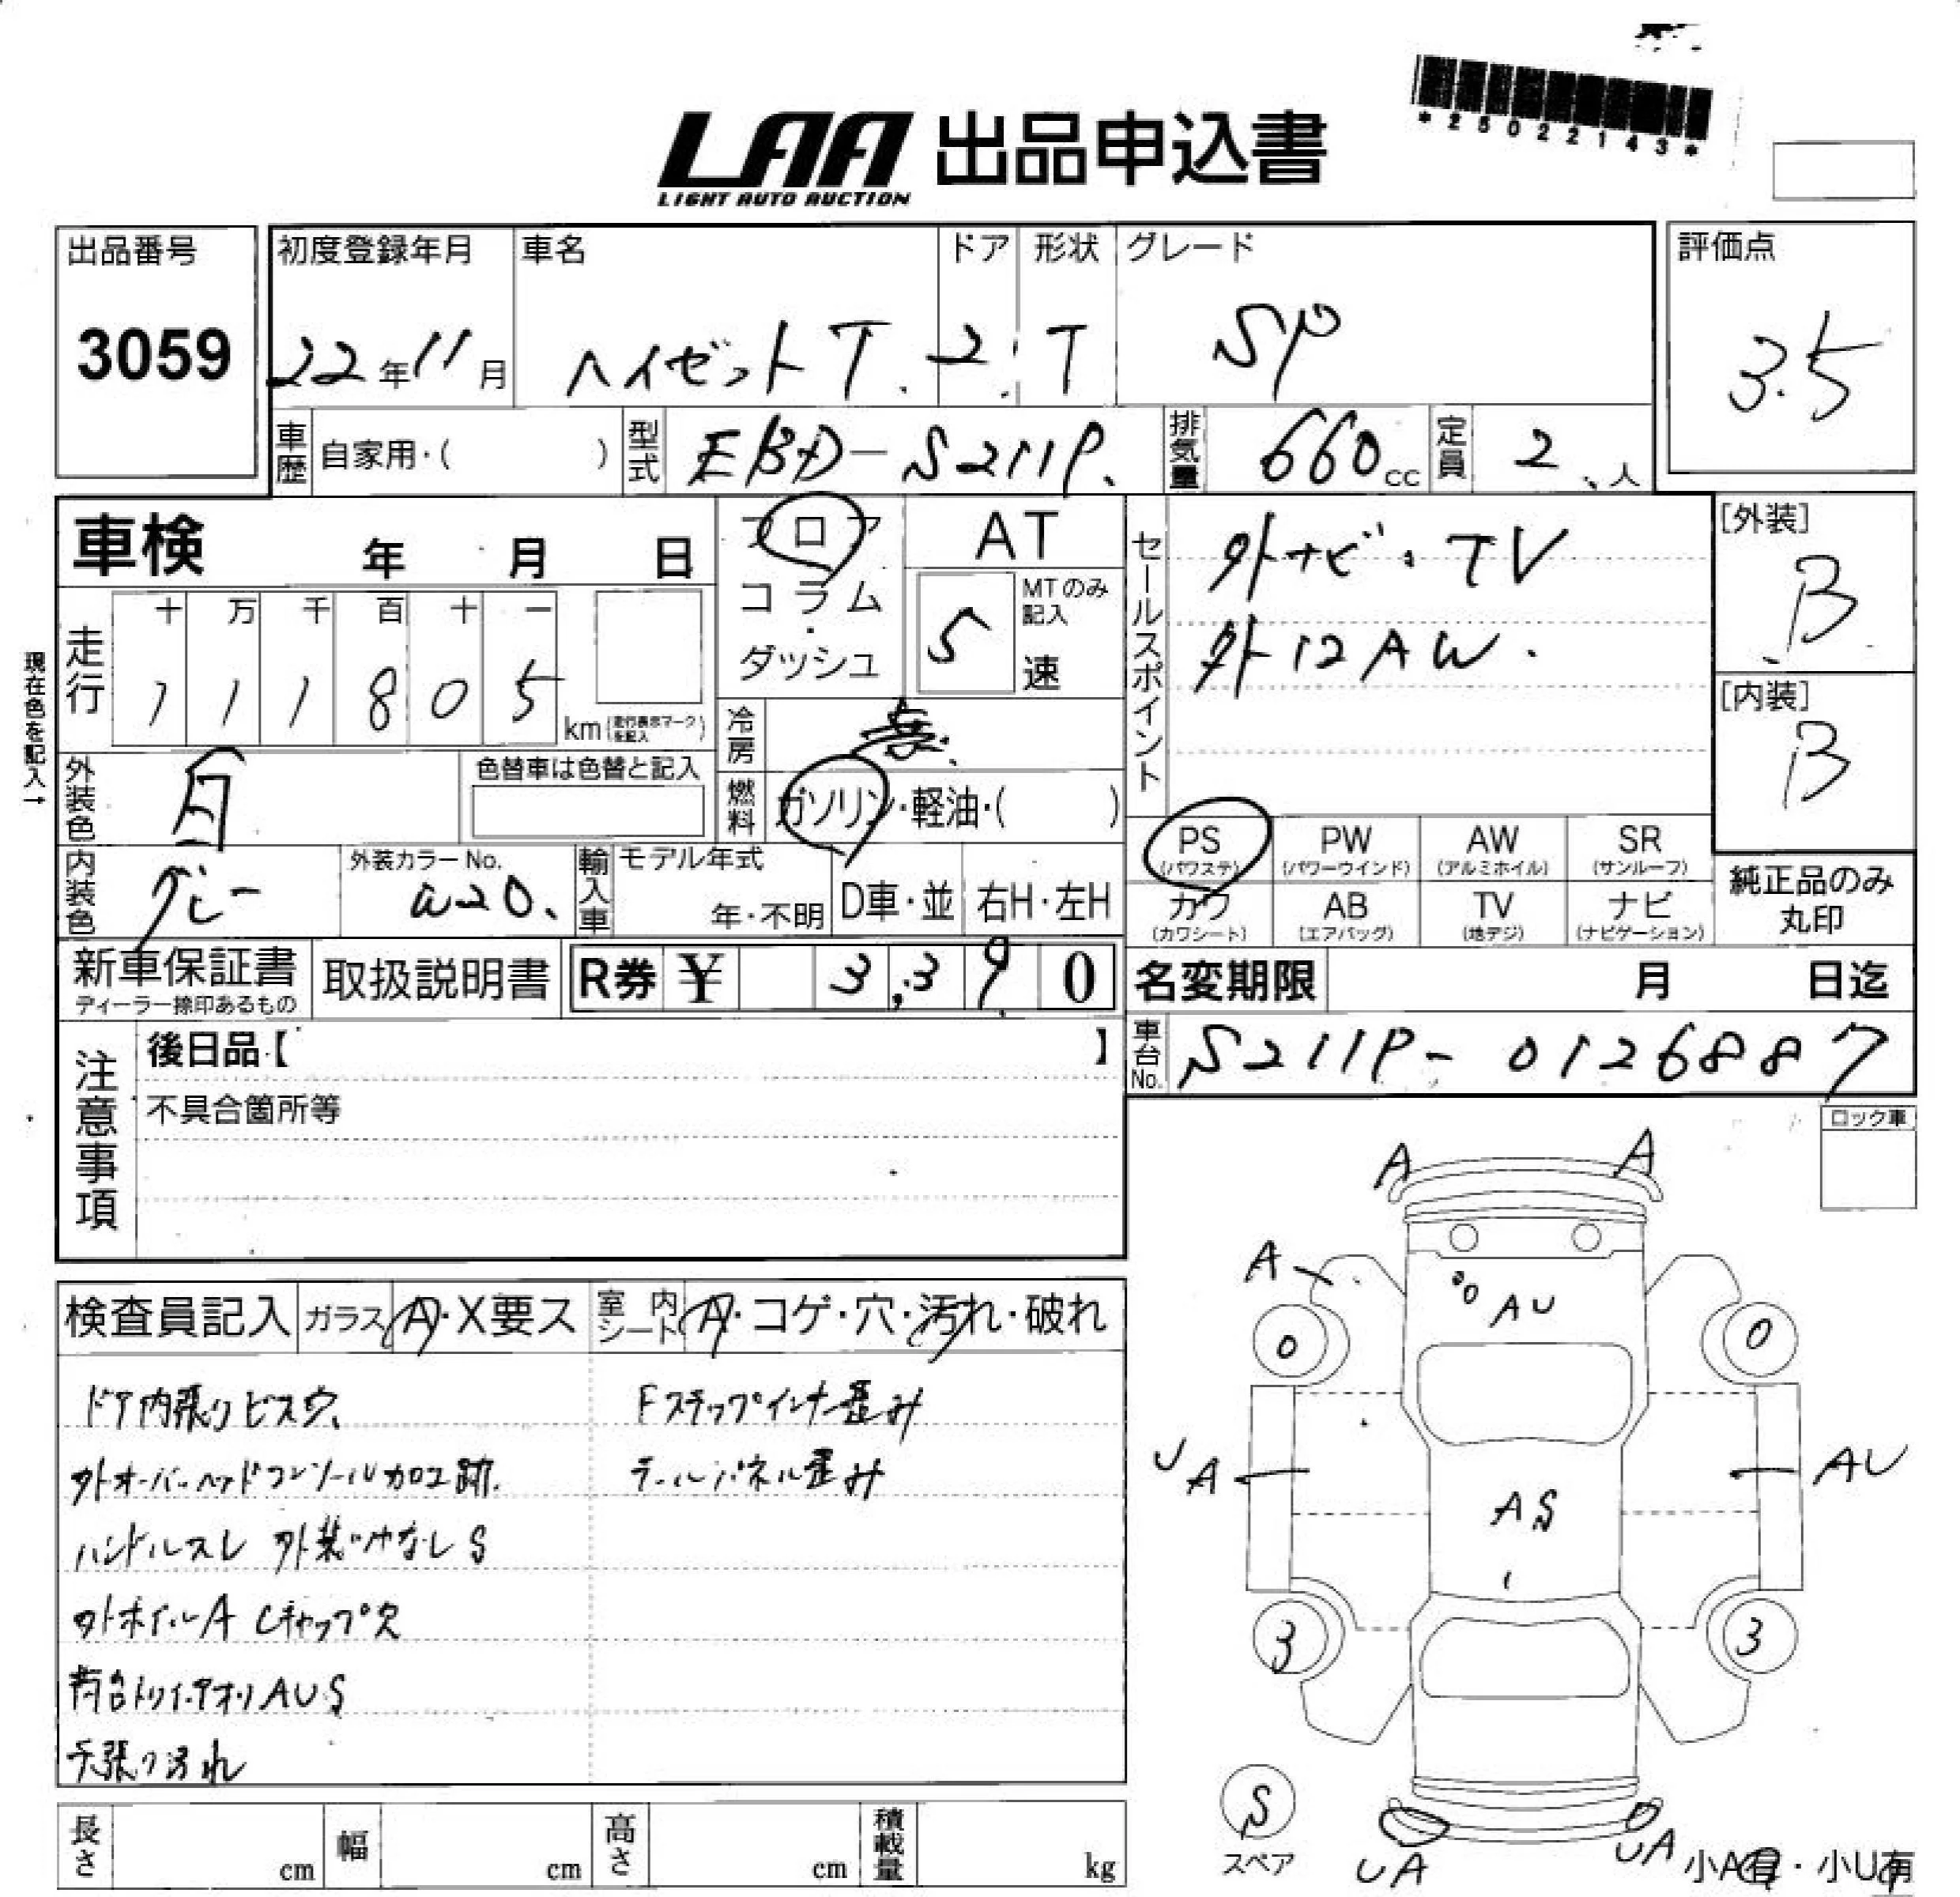 *25022143*
LAA 出品申込書
LIGHT AUTO AUCTION
出品番号
3059
初度登録年月
22年11月
車名
ハイゼットT.
ドア
2
形状
T
グレード
SP
評価点
3.5
車歴 自家用・( )
型式 EBD-S211P.
排気量 660cc
定員 2、人
車検 年 月 日
フロア
コラム
・
ダッシュ
AT
5
MTのみ
記入
速
セールスポイント
外ナビ・TV
外12AW.
[外装]
B
[内装]
B
現在色を記入→
走行
十 万 千 百 十 一
1 1 1 8 0 5
km(走行表示マークを記入)
冷房
燃料 ガソリン・軽油・( )
外装色
白
色替車は色替と記入
内装色
グレー
外装カラーNo.
W20.
輸入車
モデル年式
年・不明
D車・並
右H・左H
PS
(パワステ)
PW
(パワーウインド)
AW
(アルミホイル)
SR
(サンルーフ)
カワ
(カワシート)
AB
(エアバッグ)
TV
(地デジ)
ナビ
(ナビゲーション)
純正品のみ
丸印
新車保証書
ディーラー捺印あるもの
取扱説明書
R券 ¥ 3,390
名変期限 月 日迄
車台No. S211P-0126887
注意事項
後日品【 】
不具合箇所等
ロック車
A A
A
AU
0 0
UA
AU
AS
3 3
S
スペア
UA
UA
小A有・小U有
検査員記入
ガラス A・X要ス
室内シート A・コゲ・穴・汚れ・破れ
ドア内張りビス穴、
外オーバーヘッドコンソール加工跡.
ハンドルスレ 外装つやなしS
外ホイルA Cキャップ欠
荷台トリイ・アオリAUS
天張り汚れ
Fステップインナー歪み
テールパネル歪み
長さ cm
幅 cm
高さ cm
積載量 kg